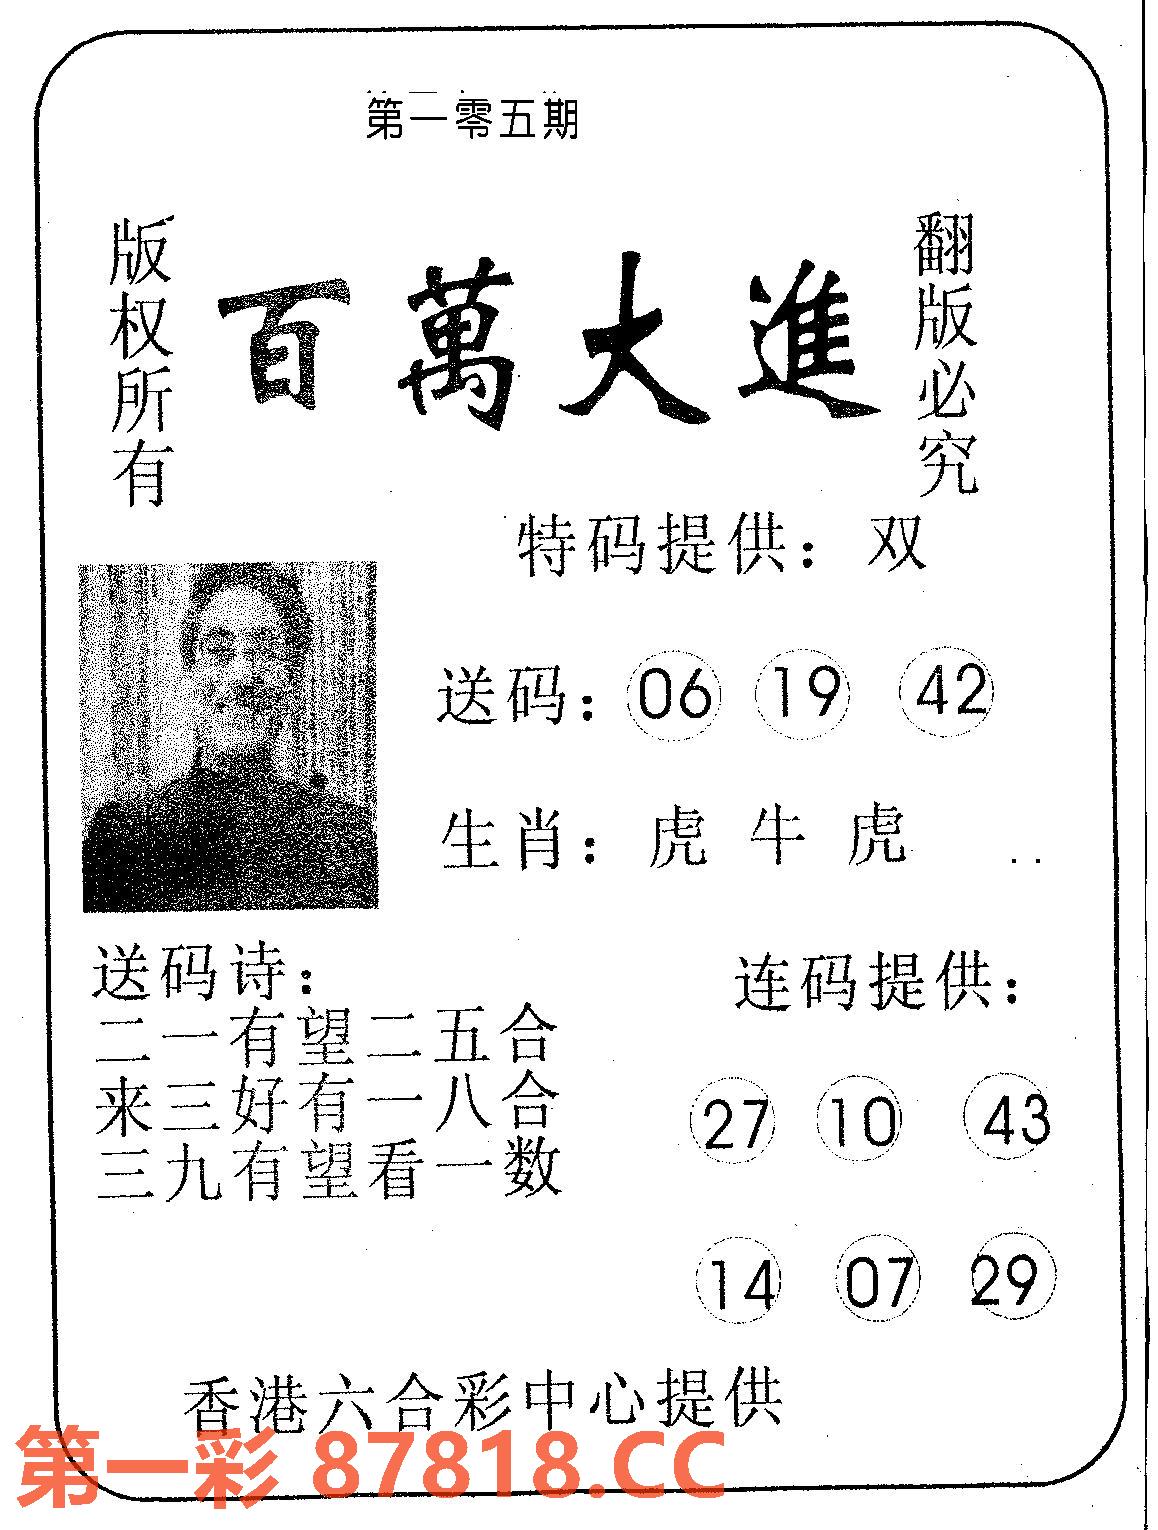 第一零五期
版权所有
百萬大進
翻版必究
特码提供：双
送码：06 19 42
生肖：虎 牛 虎
送码诗：
二一有望二五合
来三好有一八合
三九有望看一数
连码提供：
27 10 43
14 07 29
香港六合彩中心提供
第一彩 87818.CC